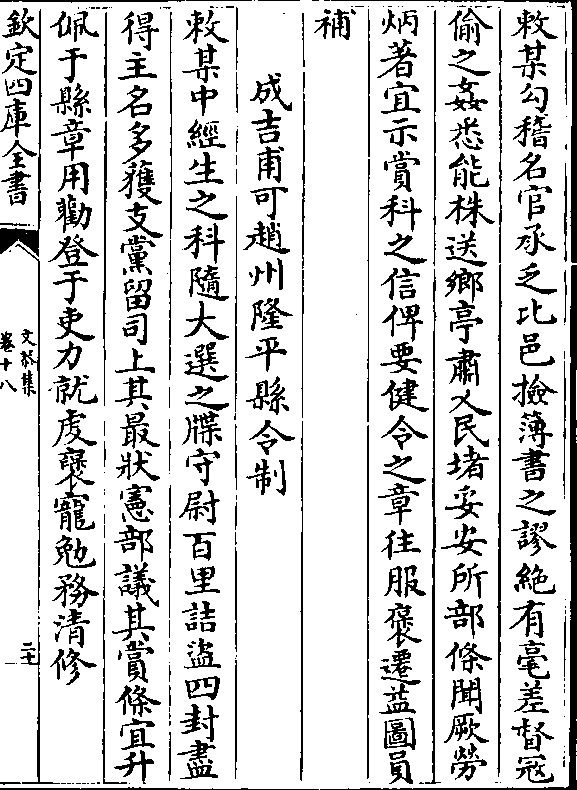 敕某勾稽名官承乏比邑撿簿書之謬絶有毫差督寇
偷之姦悉能株送鄉亭肅乂民堵妥安所部條聞厥勞
炳著宜示賞科之信俾要健令之章往服褒遷益圖員
補
成吉甫可趙州隆平縣令制
敕某中經生之科隨大選之牒守尉百里詰盜四封盡
得主名多獲支黨留司上其最狀憲部議其賞條宜升
佩于縣章用勸登于吏力就處褒寵勉務清修
欽定四庫全書
文莊集
卷十八
二十